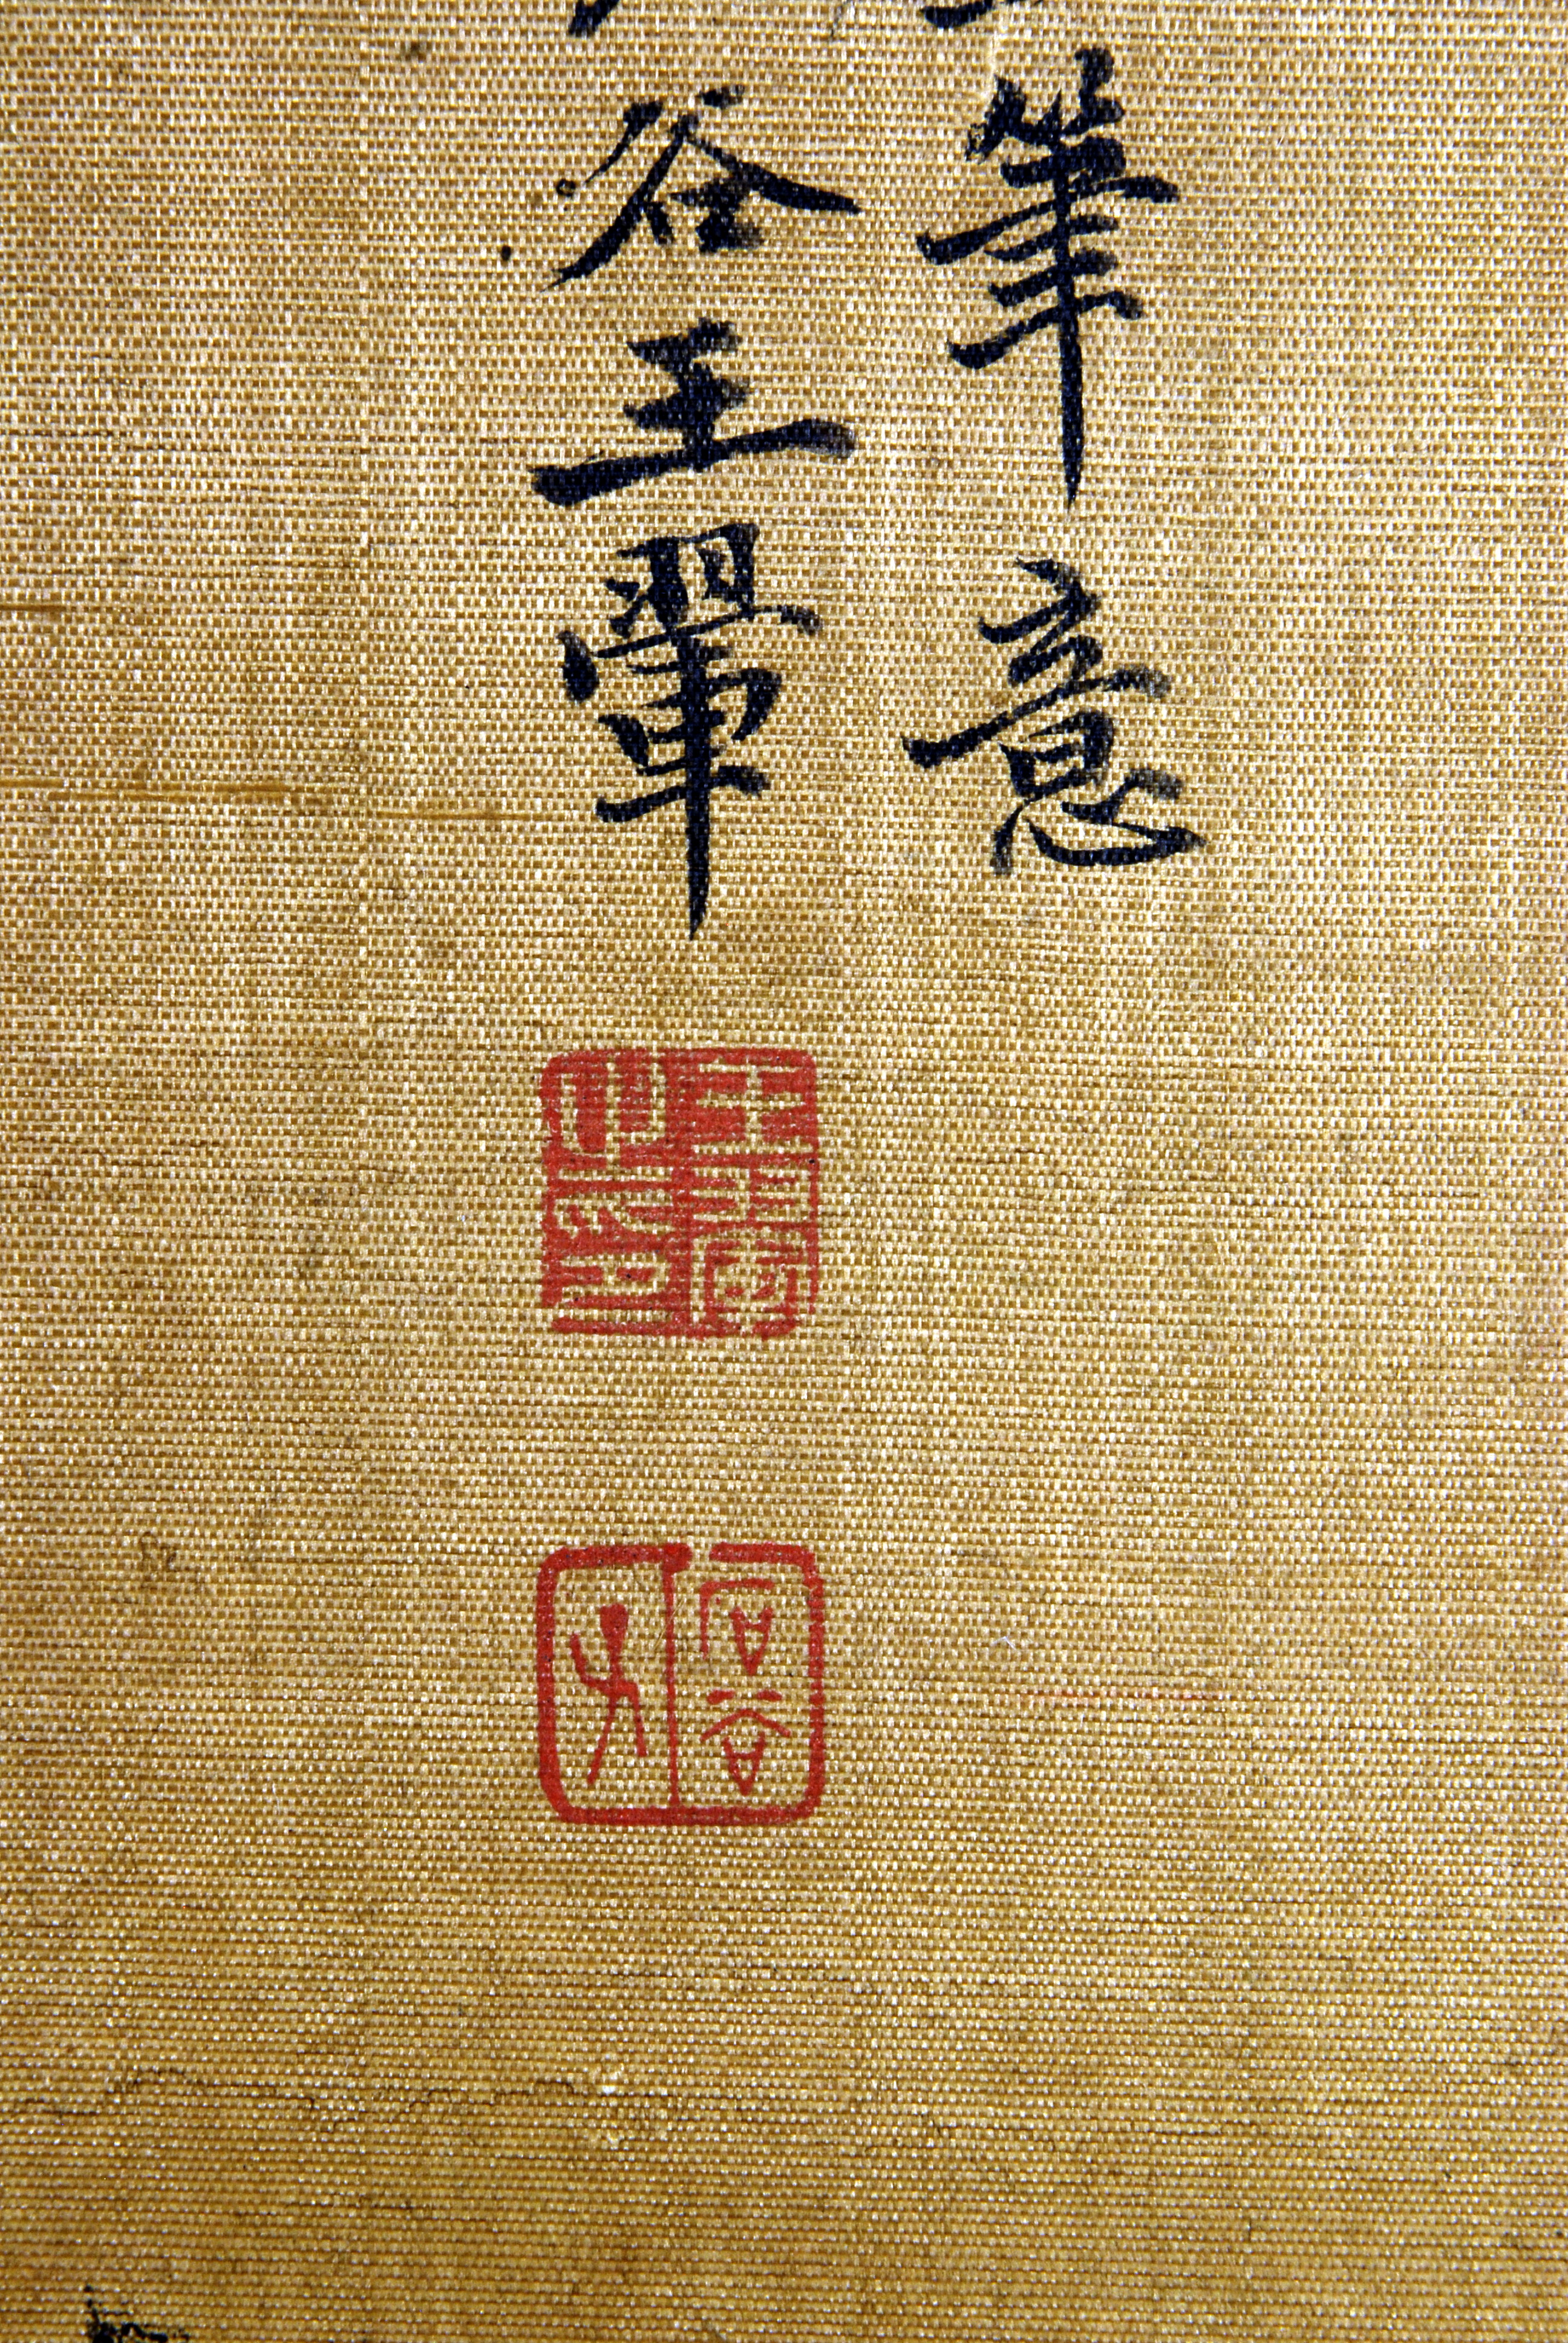 筆意
谷王翬
王翬之印
石谷子